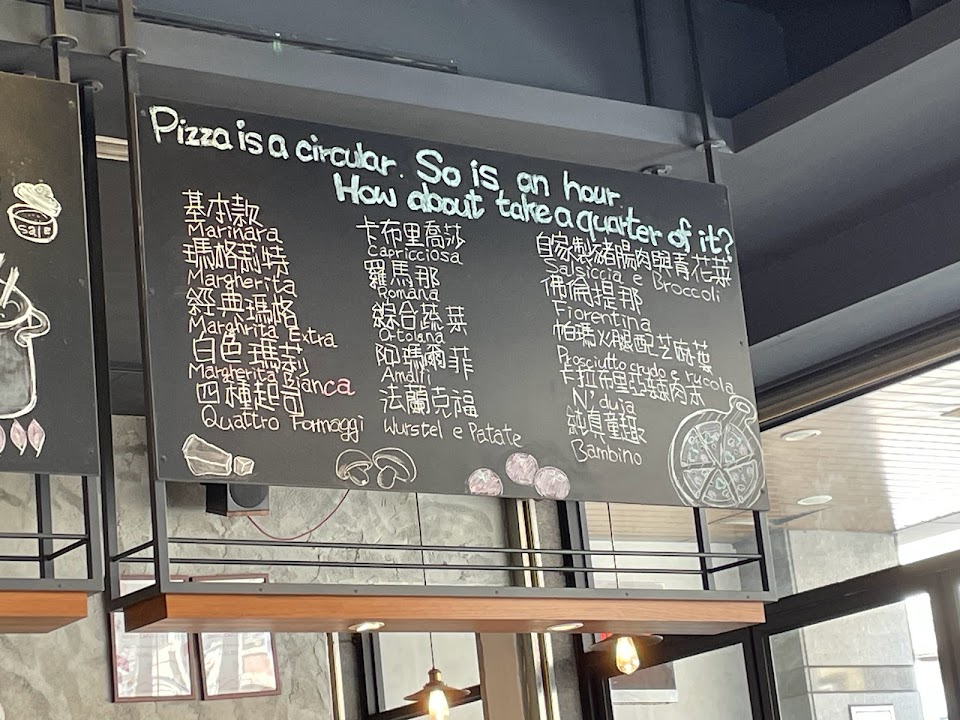 Pizza is a circular. So is an hour.
How about take a quarter of it?
基本款
Marinara
瑪格莉特
Margherita
經典瑪格
Marghrita Extra
白色瑪莉
Margherita Bianca
四種起司
Quattro Formaggi
卡布里喬莎
Capricciosa
羅馬那
Romana
綜合蔬菜
Ortolana
阿瑪爾菲
Amalfi
法蘭克福
Wurstel e Patate
自家製豬腸肉與青花菜
Salsiccia e Broccoli
佛倫提那
Fiorentina
帕瑪火腿配芝麻葉
Prosciutto crudo e rucola
卡拉布里亞辣肉末
N'duja
純真童趣
Bambino
sale